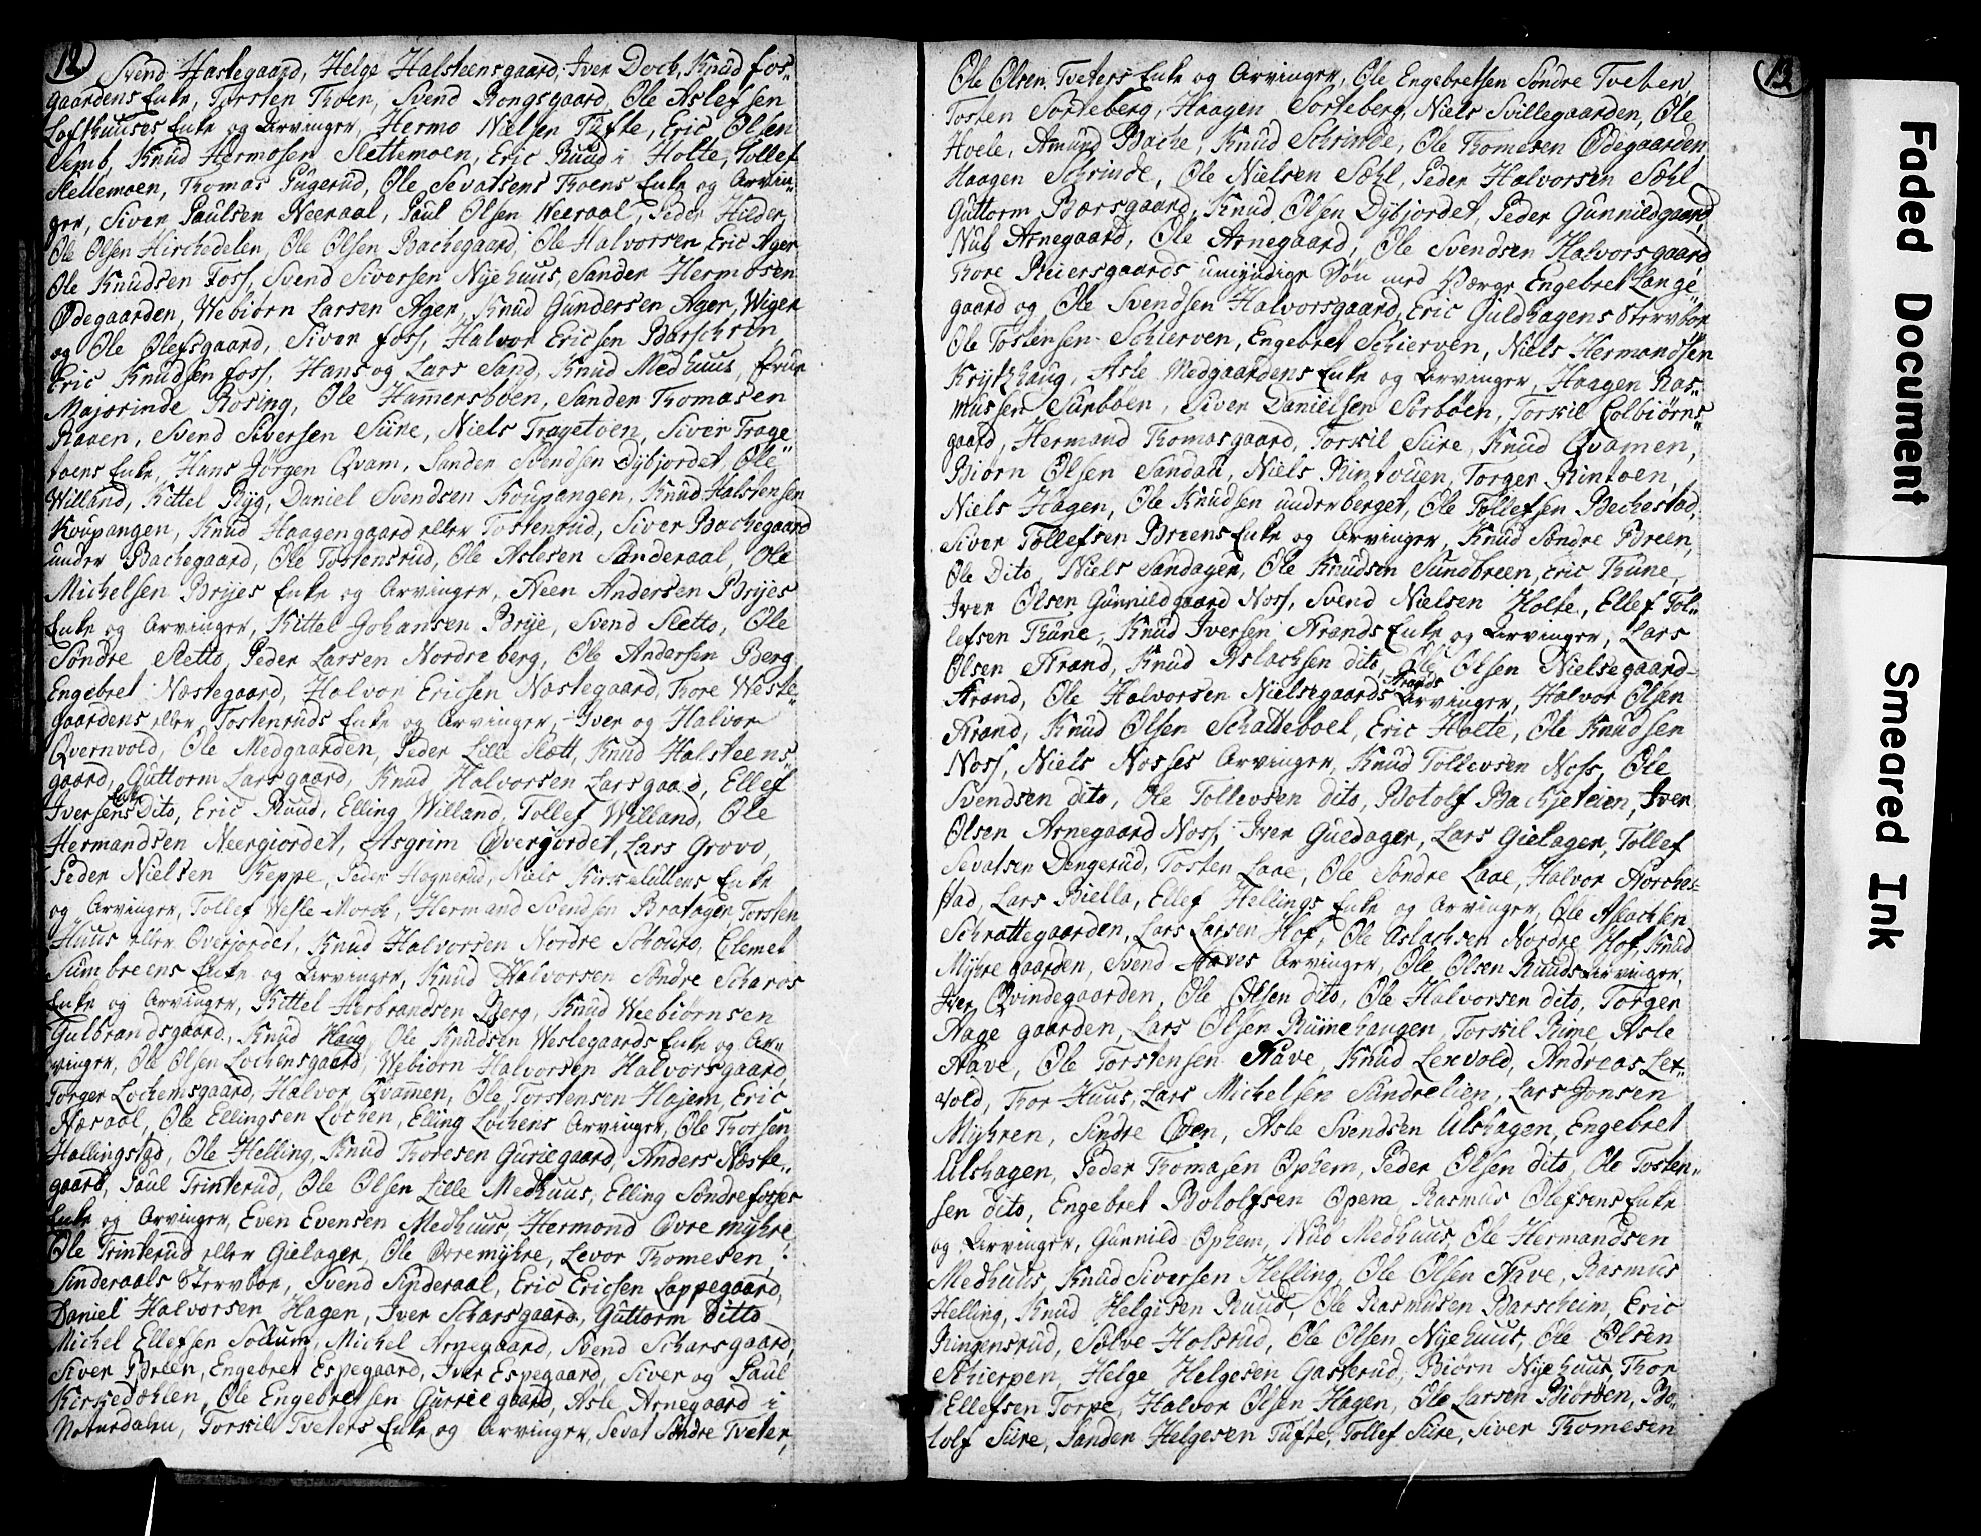 12
Svend Hastegaard, Helge Halsteensgaard, Iver Dock, Knud fos„
gaardens Enke, Torsten Thoen, Svend Rongsgaard, Ole Aslefsen
Lofthuuses Enke og Arvinger, Hermo Nielsen Tufte, Eric Olsen
Semb, Knud Hermosen Slettemoen, Eric Ruud i Holte, Tollef
Slettemoen, Thomas Pugerud, Ole Sevatsens Thoens Enke og Arvin„
ger, Siver Paulsen Neeraal, Paul Olsen Neeraal, Peder Hilder,
Ole Olsen Kirchedelen, Ole Olsen Bachegaard, Ole Halvorsen Eric Ager
Ole Knudsen Foss, Svend Siversen Nyehuus, Sander Hermosen
Ødegaarden, Webiørn Larsen Ager, Knud Gundersen Ager, Wiger
og Ole Olefsgaard, Siver foss, Halvor Ericsen Barschrin,
Eric Knudsen foss, Hans og Lars Sand, Knud Medhuus, Frue
Majorinde Rosing, Ole Hammersbøen, Sander Thomasen
Raaen, Svend Siversen Siire, Niels Tragetoen, Siver Trage„
toens Enke, Hans Jørgen Qvam, Sander Svendsen Dybjordet, Ole
Willand, Kittel Ryg, Daniel Svendsen Koupangen, Knud Halstensen
Koupangen, Knud Haagengaard eller Tostenrud, Siver Bachegaard
under Bachegaard, Ole Tostensrud, Ole Aslesen Sønderaal, Ole
Michelsen Bryes Enke og Arvinger, Neen Andersen Bryes
Enke og Arvinger, Kittel Johansen Brye, Svend Sletto, Ole
Søndre Sletto, Peder Larsen Nordreberg, Ole Andersen Berg
Engebret Næstegaard, Halvor Ericsen Næstegaard, Thore Weste„
gaardens eller Tostenruds Enke og Arvinger, Iver og Halvor
Qvernvold, Ole Medgaarden, Peder Lille Slett, Knud Halsteens„
gaard, Guttorm Larsgaard, Knud Halvorsen Larsgaard, Ellef
Iversens Enke Dito, Eric Ruud, Elling Willand, Tollef Willand, Ole
Hermandsen Neergiordet, Asgrim Overgordet, Lars Grovo,
Peder Nielsen Keppe, Peder Hognerud, Niels Kirkelullens Enke
og Arvinger, Tollef Wesle-Morck, Hermand Svendsen Bratager Torsten
Huus eller Overjordet, Knud Halvorsen Nordre Schouro, Elemet
Sumbreens Enke og Arvinger, Knud Halvorsen Søndre Scharos
Enke og Arvinger, Kittel Herbrandsen Berg, Knud Weebiørnsen
Gulbrandsgaard, Knud Haug, Ole Knudsen Weslegaards Enke og Ar„
vinger, Ole Olsen Lochensgaard, Webiørn Halvorsen Halvorsgaard,
Torger Lochensgaard, Halvor Qvammen, Ole Torstensen Hajem, Eric
Næraal, Ole Ellingsen Løchen, Elling Løchens Arvinger, Ole Thorsen
Hallingstad, Ole Helling, Knud Thoresen Guriegaard, Anders Næste„
gaard, Paul Trinterud, Ole Olsen Lille Medhuus, Elling Søndrefosses
Enke og Arvinger, Even Evensen Medhuus, Hermond Øvremyhre
Ole Trinterud eller Gielager, Ole Øvremyhre, Levor Thomesen,
Sinderaals Stervboe, Svend Sinderaal, Eric Ericsen Loppegaard,
Daniel Halvorsen Hagen, Iver Scharsgaard, Guttorm Ditto
Michel Ellefsen Sollum, Michel Arnegaard, Svend Scharsgaard,
Siver Breen, Engebret Espegaard, Iver Espegaard, Siver og Paul
Kirkedæhlen, Ole Engebretsen Gurriegaard, Asle Arnegaard i
Noturdalen, Torkil Tveters Enke og Arvinger, Sevat Søndre Tveter,
13
Ole Olsen Tveters Enke og Arvinger, Ole Engebretsen Søndre Tveten
Tosten Sorteberg, Haagen Sorteberg, Niels Svillegaarden, Ole
Hoele, Amund Bache, Knud Schrinde, Ole Thomesen Ødegaarden
Haagen Schrinde, Ole Nielsen Sæhl, Peder Halvorsen Sæhl
Guttorm Børsgaard, Knud Olsen Dybjordet, Peder Gunnildgaard
Nub Arnegaard, Ole Arnegaard, Ole Svendsen Halvorsgaard
Thore Reiersgaards umyndige Søn med Værge Engebret Lange„
gaard og Ole Svendsen Halvorsgaard, Eric Guldhagens Stervboe
Ole Tostensen Schierven, Engebret Schierven, Niels Hermandsen
Krytzhaug, Asle Medgaardens Enke og Arvinger, Haagen Ras„
mussen Surbøen, Siver Danielsen Sorbøen, Torkil Colbiørns„
gaard, Hermand Thomasgaard, Torkil Sire, Knud Qvamen,
Biørn Olsen Sandau, Niels Rintouen, Torger Rintoen,
Niels Hagen, Ole Knudsen underberget, Ole Tollefsen Bechestad,
Siver Tollefsen Breens Enke og Arvinger, Knud Søndre Breen,
Ole Dito, Niels Sandager, Ole Knudsen Sundbreen, Eric Thune,
Iver Olsen Gunnildgaard Noss, Svend Nielsen Holte, Ellef Tol„
lefsen Thune, Knud Iversen Strands Enke og Arvinger, Lars
Olsen Strand, Knud Aslachsen dito, Ole Olsen Nielsegaard
Strand, Ole Halvorsen Nielsegaards Strands Arvinger, Halvor Olsen
Strand, Knud Olsen Schatteboel, Eric Holte, Ole Knudsen
Noss, Niels Nosses Arvinger, Knud Tollevsen Noss, Ole
Svendsen dito, Ole Tollevsen dito, Botolf Bachjeteien, Iver
Olsen Arnegaard Noss, Iver Guedager, Lars Gielager, Tollef
Sevatsen Dengerud, Tosten Laae, Ole Søndre Laae, Halvor Storche„
stad, Lars Biella, Ellef Hellings Enke og Arvinger, Ole Aslachsen
Schrattegaarden, Lars Larsen Hof, Ole Aslachsen Nordre Hof, Knud
Myhregaarden, Svend Staves Arvinger, Ole Olsen Ruuds Arvinger,
Iver Qvindegaarden, Ole Olsen dito, Ole Halvorsen dito, Torger
Hagegaarden, Lars Olsen Rimehaugen, Torkil Rime, Asle
Stave, Ole Torstensen Stave, Knud Lexvold, Andreas Lex„
vold, Thor Huus, Lars Michelsen Sandrelien, Lars Jonsen
Myhren, Sindre Øen, Asle Svendsen Ulshagen, Engebret
Ulshagen, Peder Thomasen Ophem, Peder Olsen dito, Ole Tosten„
sen dito, Engebret Botolfsen Opera, Rasmus Olefsens Enke
og Arvinger, Gunnild Ophem, Nub Medhuus, Ole Hermandsen
Medhuus, Knud Siversen Helling, Ole Olsen Stave, Rasmus
Helling, Knud Helgesen Ruud, Ole Rasmusen Barscheim, Eric
Ringensrud, Sølve Holsrud, Ole Olsen Nyehuus, Ole Olsen
Schierpen, Helge Helgesen Gasterud, Biørn Nyehuus, Thor
Ellefsen Torpe, Halvor Olsen Hagen, Ole Larsen Biørøen, Bo„
tolf Siire, Sander Helgesen Tufte, Tollef Siire, Siver Thomesen
Faded Document
Smeared Ink